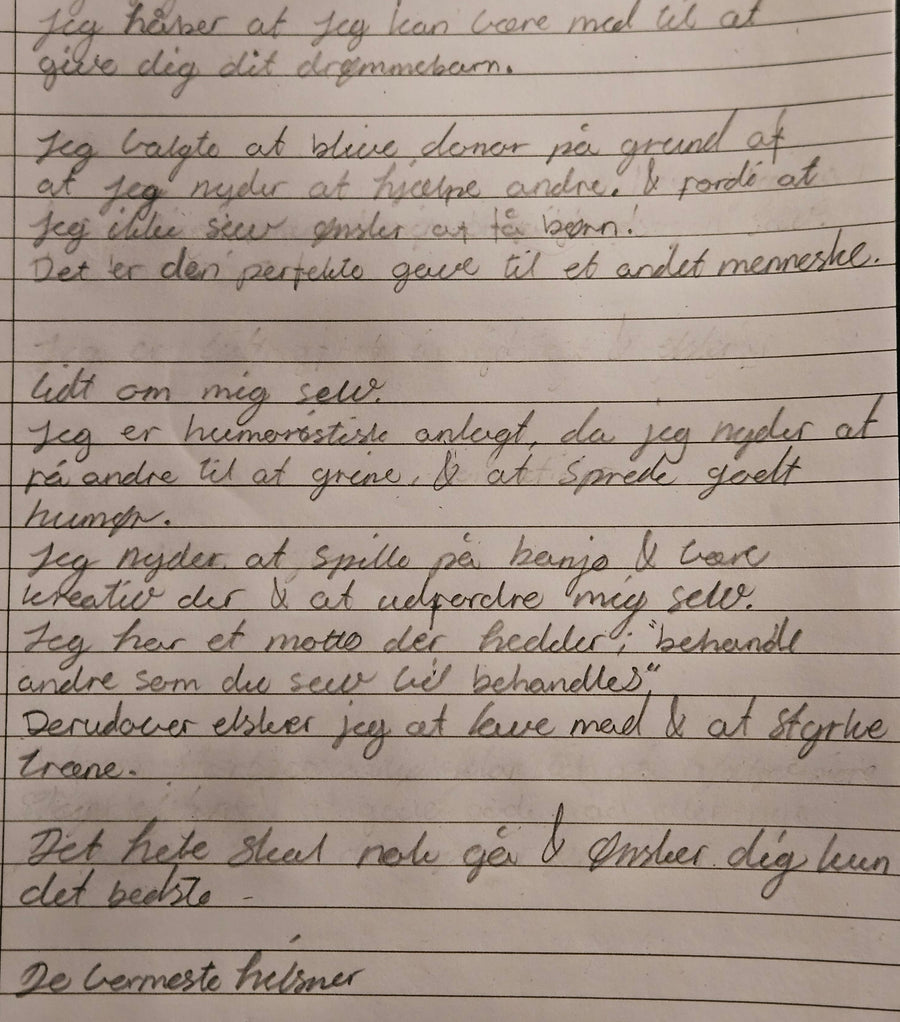 Jeg håber at Jeg kan være med til at
give dig dit drømmebarn.
Jeg valgte at blive donor på grund af
at Jeg nyder at hjælpe andre. & fordi at
Jeg ikke selv ønsker at få børn!
Det er den perfekte gave til et andet menneske.
lidt om mig selv.
Jeg er humoristisk anlagt, da jeg nyder at
få andre til at grine, & at sprede godt
humør.
Jeg nyder at spille på banjo & være
kreativ der & at udfordre mig selv.
Jeg har et motto der hedder; "behandl
andre som du selv vil behandles"
Derudover elsker jeg at lave mad & at styrke
træne.
Det hele skal nok gå & Ønsker dig kun
det bedste -
De varmeste hilsner